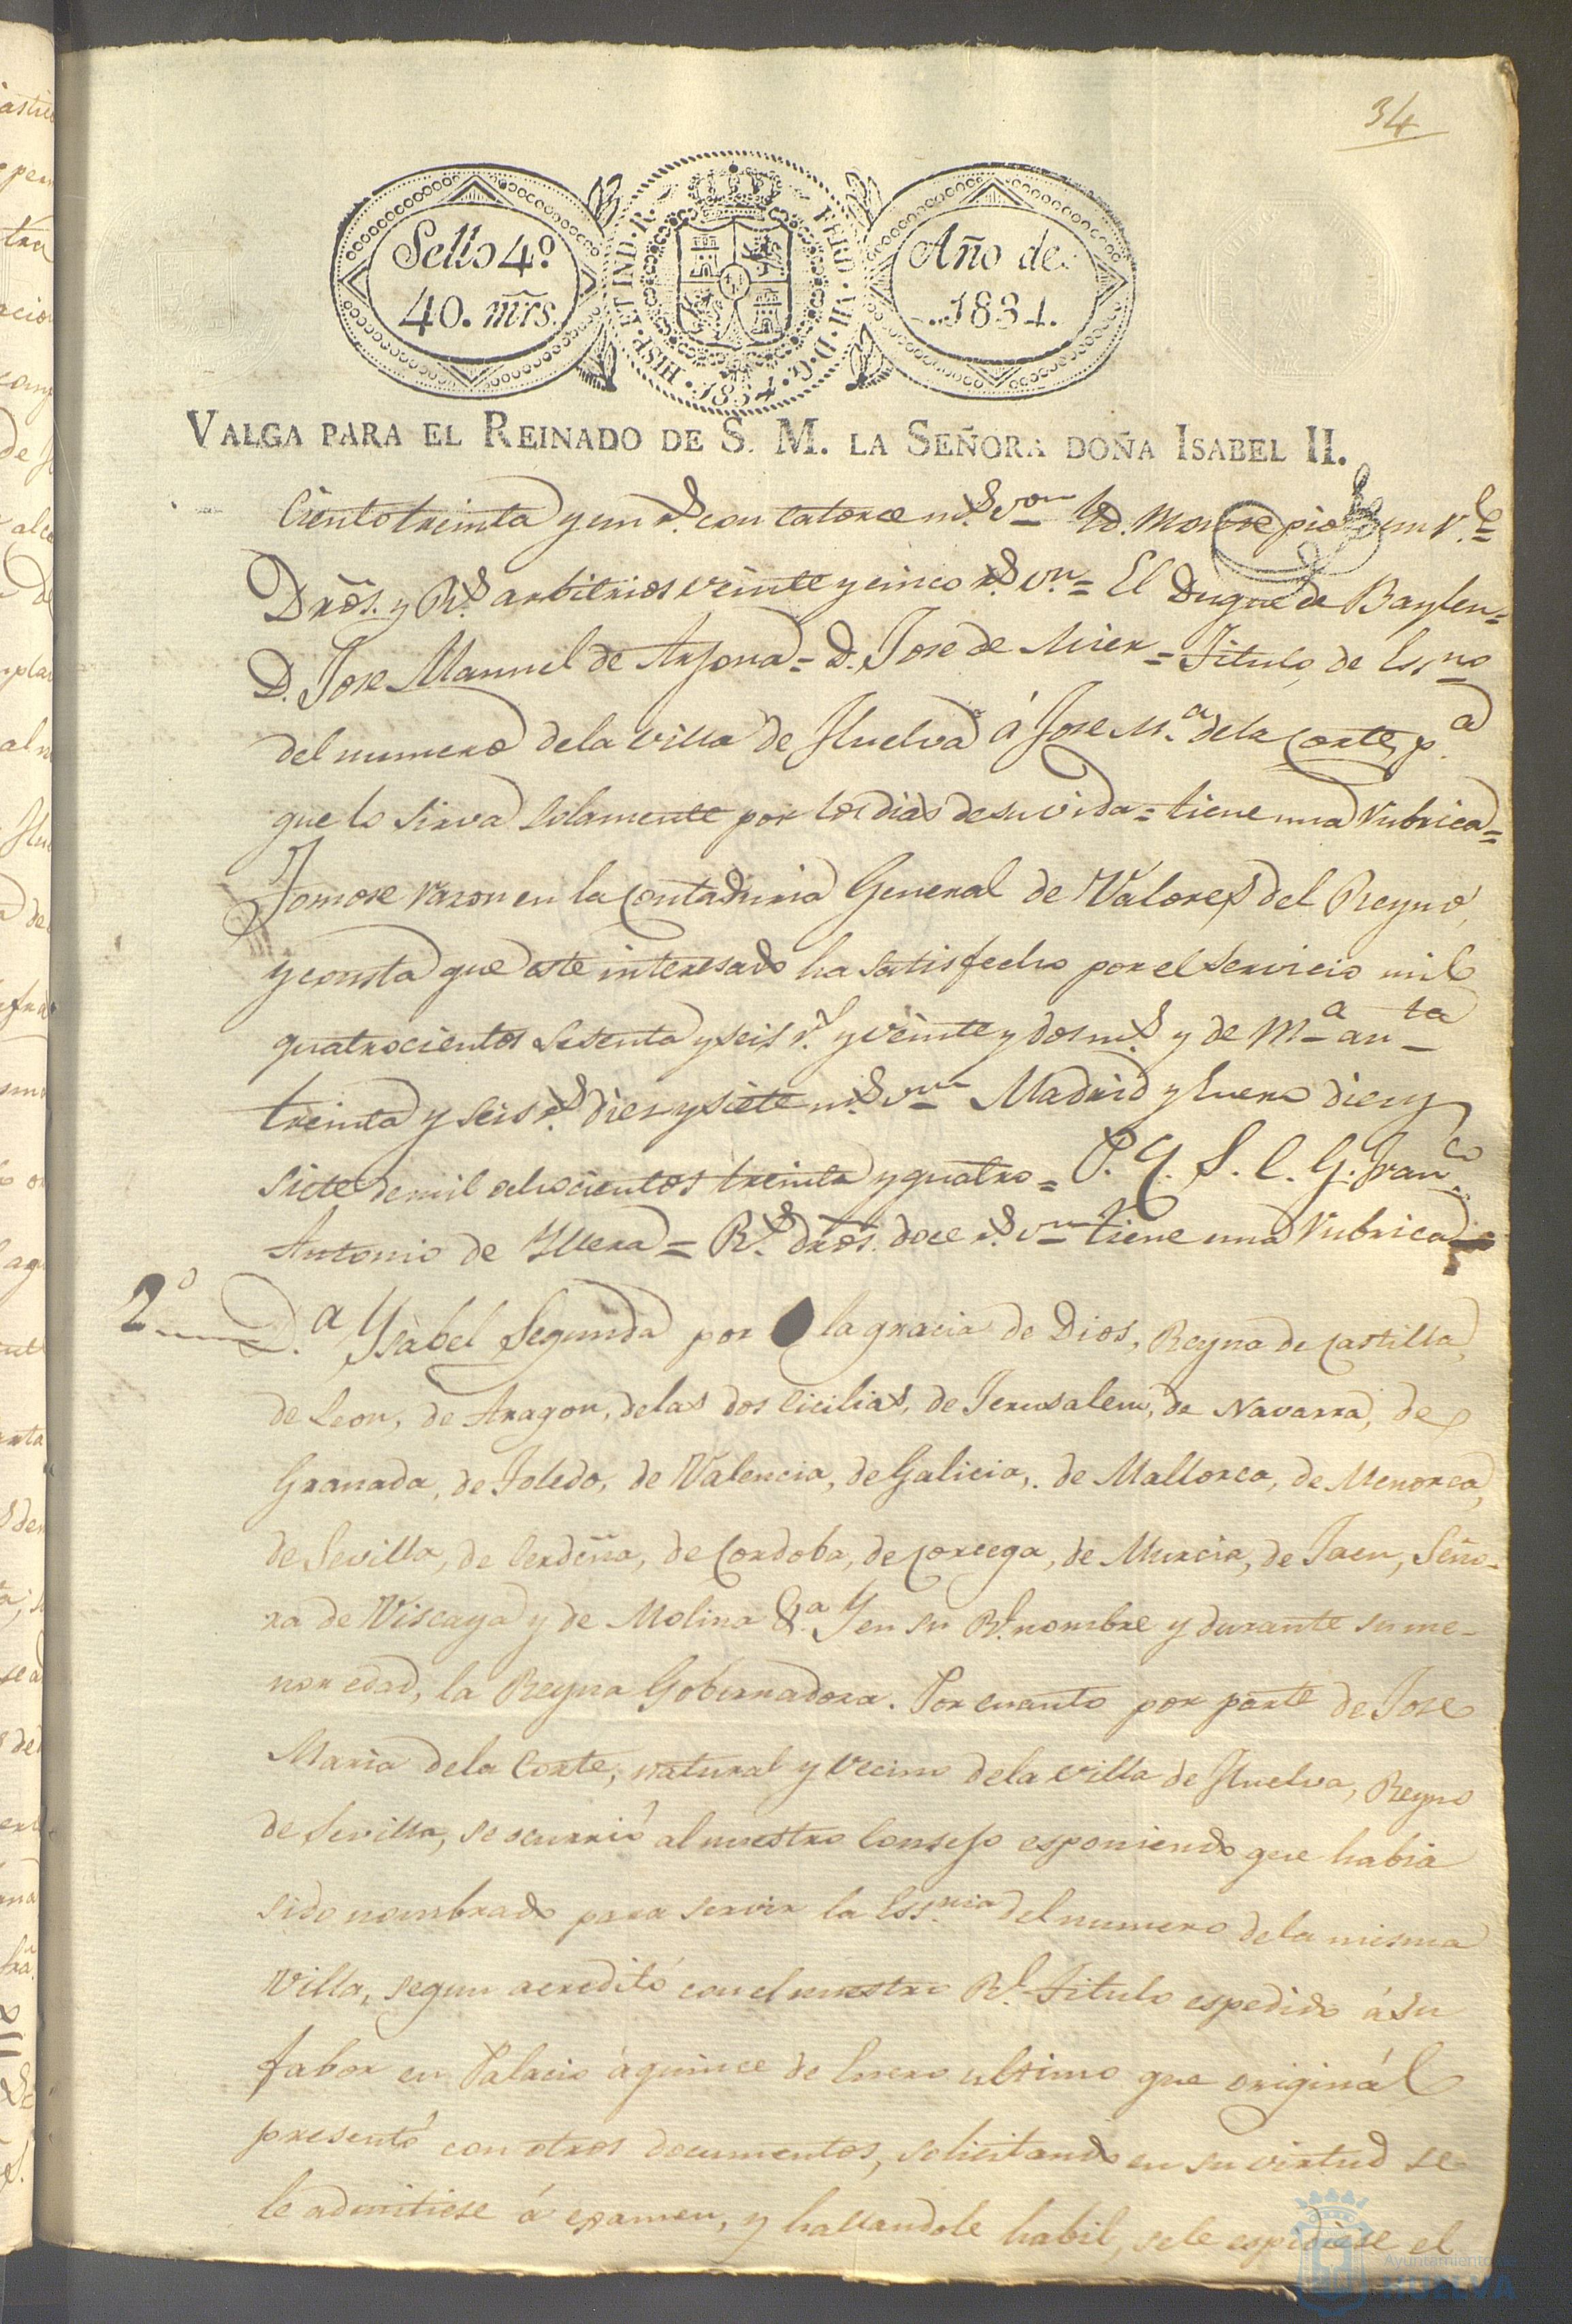 34
Sello 4º
40. mrs.
HISP. ET IND. R.
FERD. VII. D. G.
1834
Año de
1834.
VALGA PARA EL REINADO DE S. M. LA SEÑORA DOÑA ISABEL II.
Ciento treinta y un rs. con catorce ms. von
Dros. y Rs. arbitrios veinte y cinco rs. vn. = El Duque de Baylen =
D. Jose Manuel de Arjona = D. Jose de Mier = Titulo de Essno
del numero dela villa de Huelva á Jose Ma. dela Corte, pa.
que lo sirva solamente por los dias de su vida = tiene una rubrica =
Tomose razon en la Contaduria General de Valores del Reyno,
y consta que este interesado ha satisfecho por el servicio mil
quatrocientos sesenta y seis rs. y veinte y dos ms. y de Ma anta
treinta y seis rs. diez y siete ms. von Madrid y Enero diez y
siete de mil ochocientos treinta y quatro = P. Y. S. C. G. Franco.
Antonio de Yllera = Rs. dros. doce rs. von tiene una rubrica =
2º D.a Ysabel Segunda por la gracia de Dios, Reyna de Castilla,
de Leon, de Aragon, delas dos Cicilias, de Jerusalem, de Navarra, de
Granada, de Toledo, de Valencia, de Galicia, de Mallorca, de Menorca,
de Sevilla, de Cerdeña, de Cordoba, de Corcega, de Murcia, de Jaen, Seño-
ra de Viscaya y de Molina &.a Y en su Rl. nombre y durante su me-
nor edad, la Reyna Gobernadora. Por cuanto por parte de Jose
Maria dela Corte, natural y vecino dela villa de Huelva, Reyno
de Sevilla, se ocurrió al nuestro Consejo esponiendo que habia
sido nombrado para servir la Essnia del numero dela misma
Villa, segun acreditó con el nuestro Rl. Titulo espedido á su
fabor en Palacio à quince de Enero ultimo que originál
presentó con otros documentos, solicitando en su virtud se
le admitiese á examen, y hallandole habil, sele espidiese el
Ayuntamiento de
HUELVA